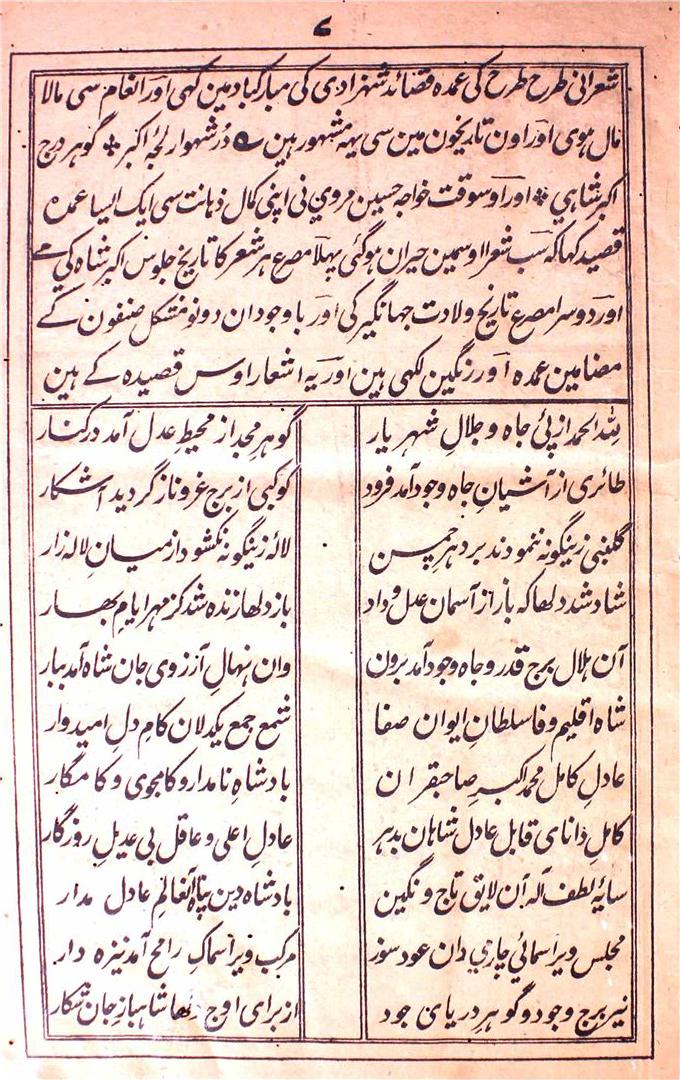 ۷
شعرانی طرح طرح کی عمدہ قصائد شہزادی کی مبارکباد مین کہی اور انعام سی مالا
مال ہوی اور اون تاریخون مین سی یہہ مشہور ہین ؎ دُر شہوار لجۂ اکبر ٭ گوہر درج
اکبر شاہی ٭ اور اوسوقت خواجہ حسین مروی نی اپنی کمال ذہانت سی ایک ایسا عمدہ
قصیدہ کہا کہ سب شعرا اوسمین حیران ہوگئی پہلا مصرع ہر شعر کا تاریخ جلوس اکبر شاہ کی ہے
اور دوسرا مصرع تاریخ ولادت جہانگیر کی اور باوجود ان دونو مشکل صنفون کے
مضامین عمدہ اور رنگین لکہی ہین اور یہ اشعار اوس قصیدہ کے ہین
للہ الحمد از پئ جاہ و جلالِ شہریار گوہرِ مجد از محیطِ عدل آمد در کنار
طائری از آشیانِ جاہ وجود آمد فرود کوکبی از برج عز و ناز گردید اشکار
گلبنی زینگونہ ننمودند بر دہر چمن لالۂ زینگونہ نکشود از میانِ لالہ زار
شاد شد دلہا کہ باز از آسمان عدل و داد باز دلہا زندہ شد کز مہر ایامِ بہار
آن ہلال برج قدر و جاہ وجود آمد برون وان نہالِ آرزوی جان شاہ آمد ببار
شاہ اقلیم وفا سلطانِ ایوان صفا شمع جمع یکدلان کامِ دلِ امیدوار
عادل کامل محمد اکبرِ صاحبقران بادشاہِ نامدار و کامجوی و کامگار
کامل دانای قابل عادل شاہان بدہر عادلِ اعلی و عاقل بی عدیلِ روزگار
سایۂ لطف الٰہ آن لایق تاج و نگین بادشاہ دین پناہ آن عالمِ عادل مدار
مجلس ویرا سمائی چارمی دان عود سوز مرکب ویرا سماکِ رامح آمد نیزہ دار
نیر برج وجود و گوہر دریای جود از برای اوج دلہا شاہباز جان شکار